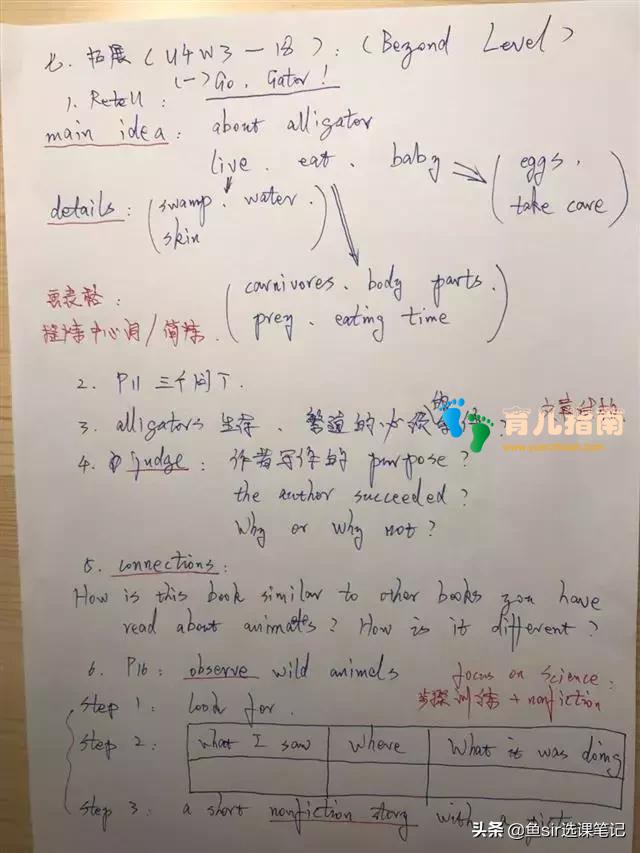 七. 拓展 (U4W3-18): (Bezond Level)
(一) Go, Gator!
1. Retell:
main idea: about alligator
live. eat. baby (eggs.
take care)
details: (swamp. water.
skin)
(carnivores. body parts.
prey. eating time)
中心词/简练.
2. P11 三个问T.
3. alligators 生存.
4. judge: 作者写作的 purpose?
the author succeeded?
Why or Why not?
5. connections:
How is this book similar to other books you have
read about animals? How is it different?
6. P16: observe wild animals
focus on science:
步骤训练 + nonfiction
step 1: look for.
step 2: what I saw where What it was doing
step 3: a short nonfiction story with a
育儿指南
头条 @鱼sir选课笔记